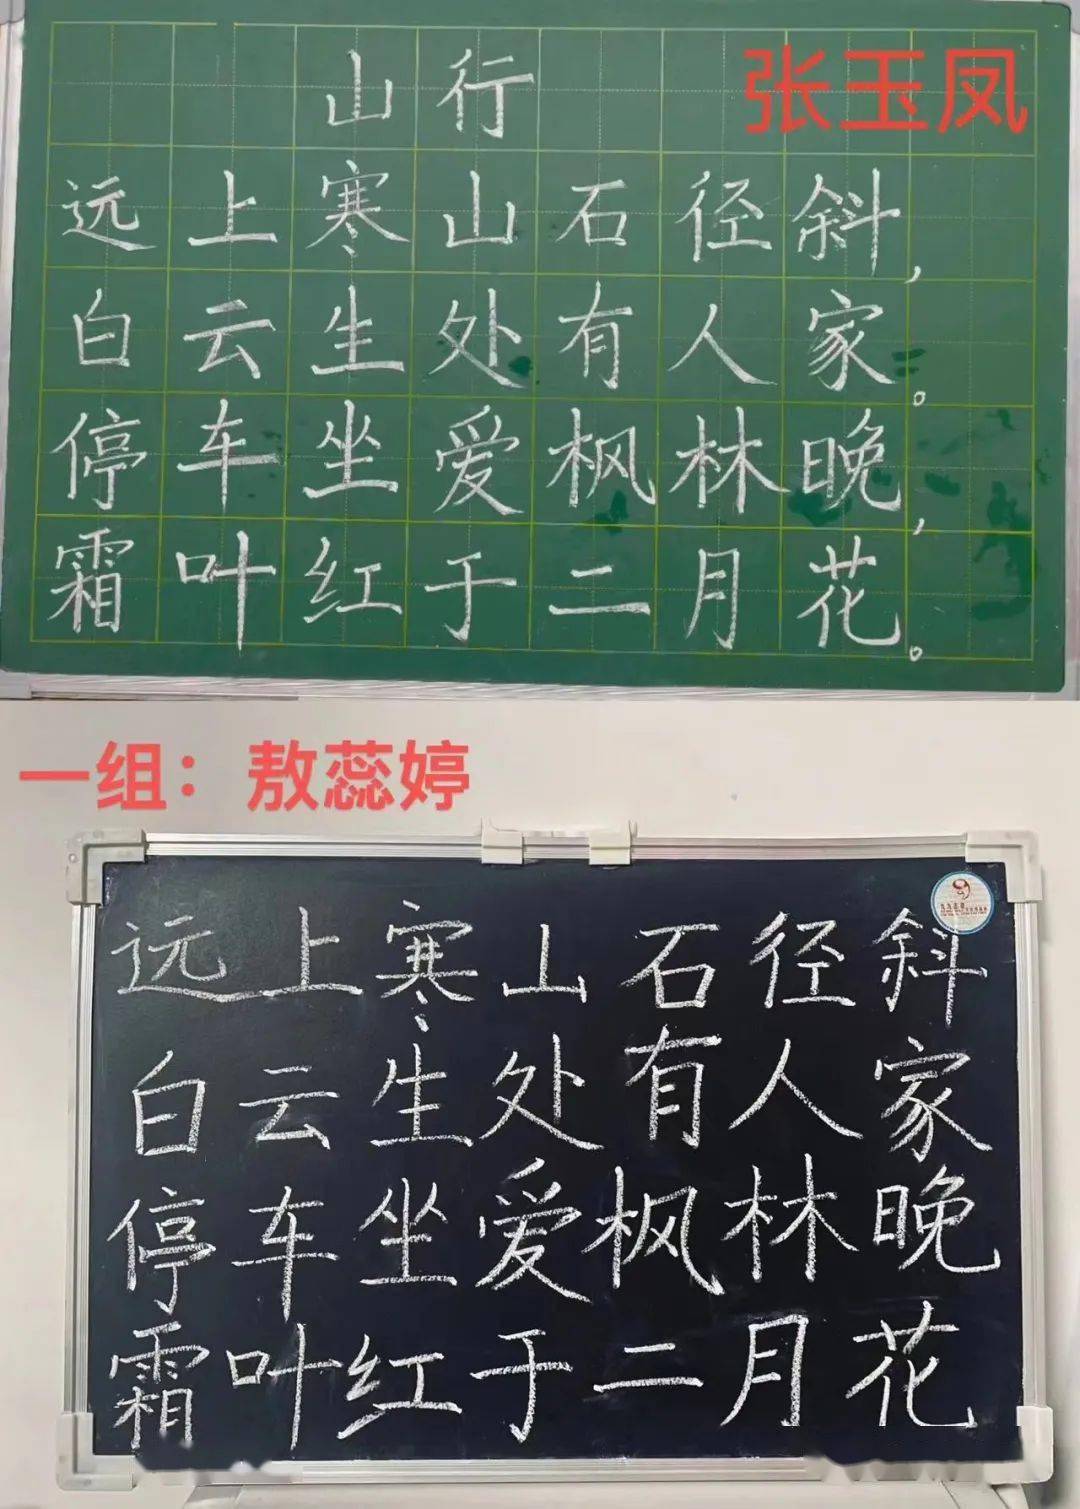 山行
张玉凤
远上寒山石径斜，
白云生处有人家。
停车坐爱枫林晚，
霜叶红于二月花。
一组：敖蕊婷
远上寒山石径斜
白云生处有人家
停车坐爱枫林晚
霜叶红于二月花